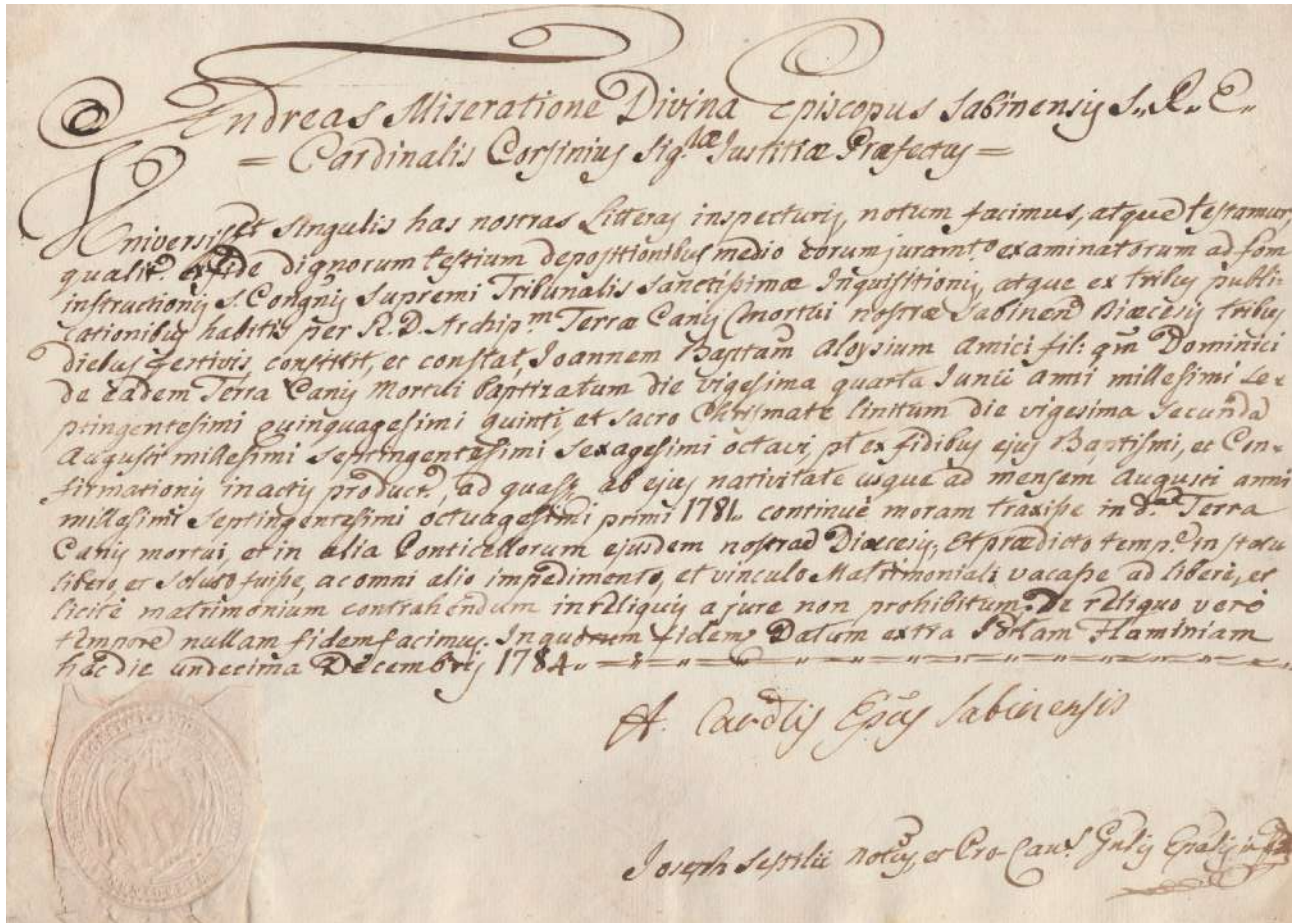 Andreas Miseratione Divina Episcopus Sabinensis S. R. E.
= Cardinalis Corsinius Sig.ræ Justitiæ Præfectus =
Universis et Singulis has nostras Litteras inspecturis, notum facimus, atque testamur,
qualit. ex fide dignorum testium depositionibus medio eorum juram.to examinatorum ad fom
instructionis S. Congnis Supremi Tribunalis Sanctissimæ Inquisitionis, atque ex tribus publi-
cationibus habitis per R. D. Archip.m Terræ Canis Mortui nostræ Sabinen Diæcesis tribus
diebus festivis, constitit, et constat, Joannem Baptam Aloysium Amici fil: qm Dominici
de eadem Terra Canis Mortui baptizatum die vigesima quarta Junii anni millesimi Se-
ptingentesimi quinquagesimi quinti, et sacro Chrismate linitum die vigesima secunda
Augusti millesimi Septingentesimi Sexagesimi octavi, pt ex fidibus ejus Baptismi, et Con-
firmationis in actis product., ad quas, ab ejus nativitate usque ad mensem Augusti anni
millesimi Septingentesimi octuagesimi primi 1781. continuè moram traxisse in d.a Terra
Canis mortui, et in alia Ponticellorum ejusdem nostræ Diæcesis; Et prædicto temp.e in statu
libero, et soluto fuisse, ac omni alio impedimento, et vinculo Matrimoniali vacasse ad liberè, et
licitè matrimonium contrahendum in reliquis a jure non prohibitum. De reliquo verò
tempore nullam fidem facimus. In quorum fidem Datum extra Portam Flaminiam
hac die undecima Decembris 1784.
A. Cardlis Epus Sabinensis
Joseph Septilii Notus, et Pro-Canc. Gnlis Epalis